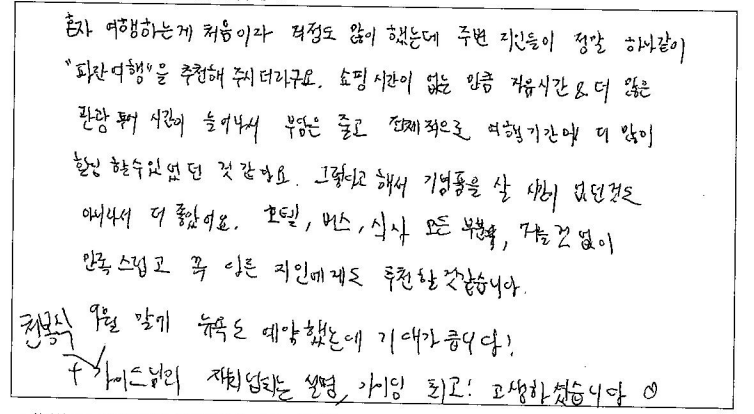 혼자 여행하는게 처음이라 걱정도 많이 했는데 주변 지인들이 정말 하나같이
"파란여행"을 추천해 주시더라구요. 쇼핑시간이 없는 만큼 자유시간 & 더 많은
관광 투어 시간이 늘어나서 부담은 줄고 전체적으로 여행기간에 더 많이
힐링 할수있었던 것 같아요. 그렇다고 해서 기념품을 살 시간이 없던것도
아니라서 더 좋았어요. 호텔, 버스, 식사 모든 부분, 거를것 없이
만족스럽고 꼭 다른 지인에게도 추천할것같습니다.
9월 말에 뉴욕도 예약했는데 기대가 큽니당!
+ 가이드님의 재치넘치는 설명, 가이딩 최고! 고생하셨습니다